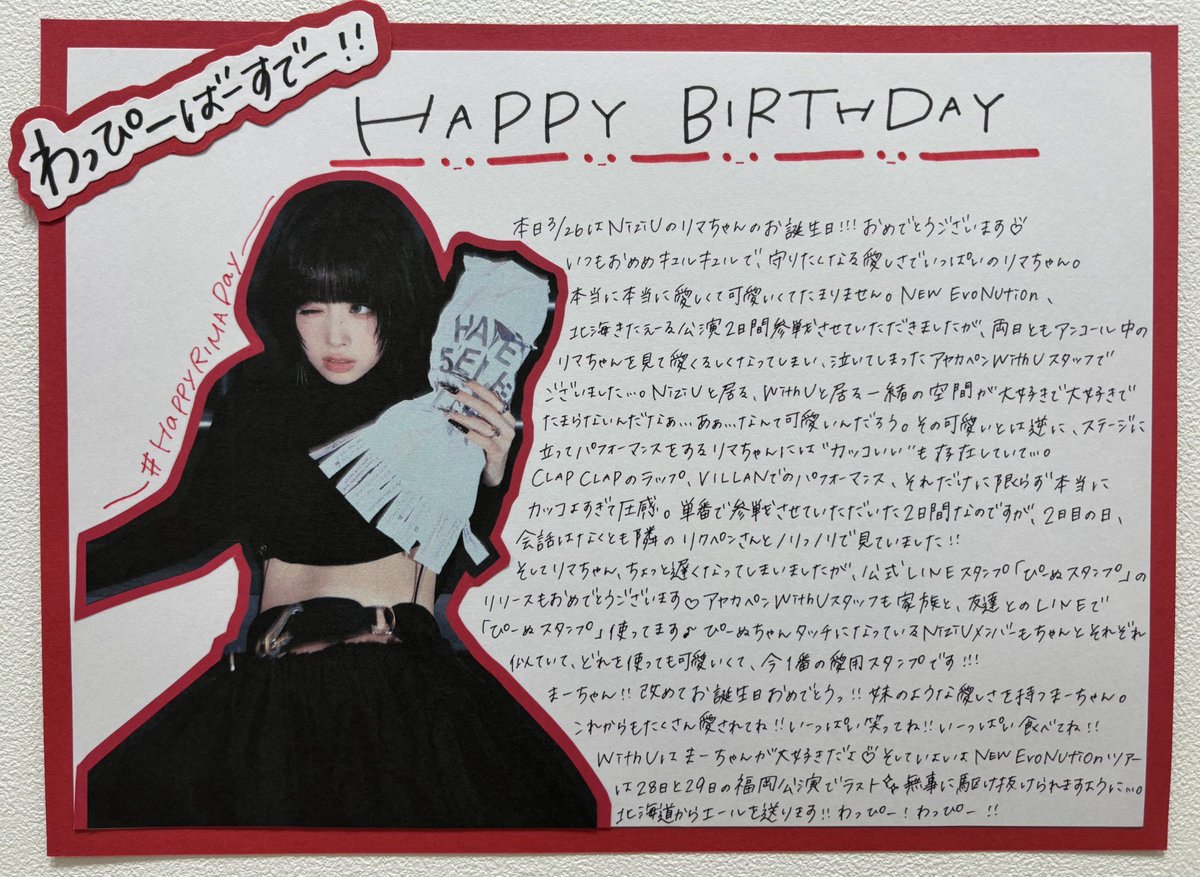 わっぴーばーすでー!!
HAPPY BIRTHDAY
#HAPPY RIMA Day
HATE
SELF
本日3/26はNiziUのリマちゃんのお誕生日!!!おめでとうございます♡
いつもおめめキュルキュルで、守りたくなる愛しさでいっぱいのリマちゃん。
本当に本当に愛しくて可愛いくてたまりません。NEW EVONUtion、
北海きたえーる公演2日間参戦させていただきましたが、両日ともアンコール中の
リマちゃんを見て愛くるしくなってしまい、泣いてしまったアヤカペンWithUスタッフで
ございました…。NiziUと居る、WithUと居る一緒の空間が大好きで大好きで
たまらないんだなぁ…あぁ…なんて可愛いんだろう。その可愛いとは逆に、ステージに
立ってパフォーマンスをするリマちゃんには"カッコいい"も存在していて…。
CLAP CLAPのラップ、VILLANでのパフォーマンス、それだけに限らず本当に
カッコよすぎて圧感。単番で参戦させていただいた2日間なのですが、2日目の日、
会話はなくとも隣のリクペンさんとノリっノリで見ていました!!
そしてリマちゃん、ちょっと遅くなってしまいましたが、公式LINEスタンプ「ぴーぬスタンプ」の
リリースもおめでとうございます♡アヤカペンWithUスタッフも家族と、友達とのLINEで
「ぴーぬスタンプ」使ってます♪ぴーぬちゃんタッチになっているNiziUメンバーもちゃんとそれぞれ
似ていて、どれを使っても可愛いくて、今1番の愛用スタンプです!!!
まーちゃん!!改めてお誕生日おめでとうっ!!妹のような愛しさを持つまーちゃん。
これからもたくさん愛されてね!!いーっぱい笑ってね!!いーっぱい食べてね!!
WithUはまーちゃんが大好きだよ♡そしていよいよNEW EVONUtionツアー
は28日と29日の福岡公演でラスト☆無事に駆け抜けられますように…。
北海道からエールを送ります!!わっぴー!わっぴー!!